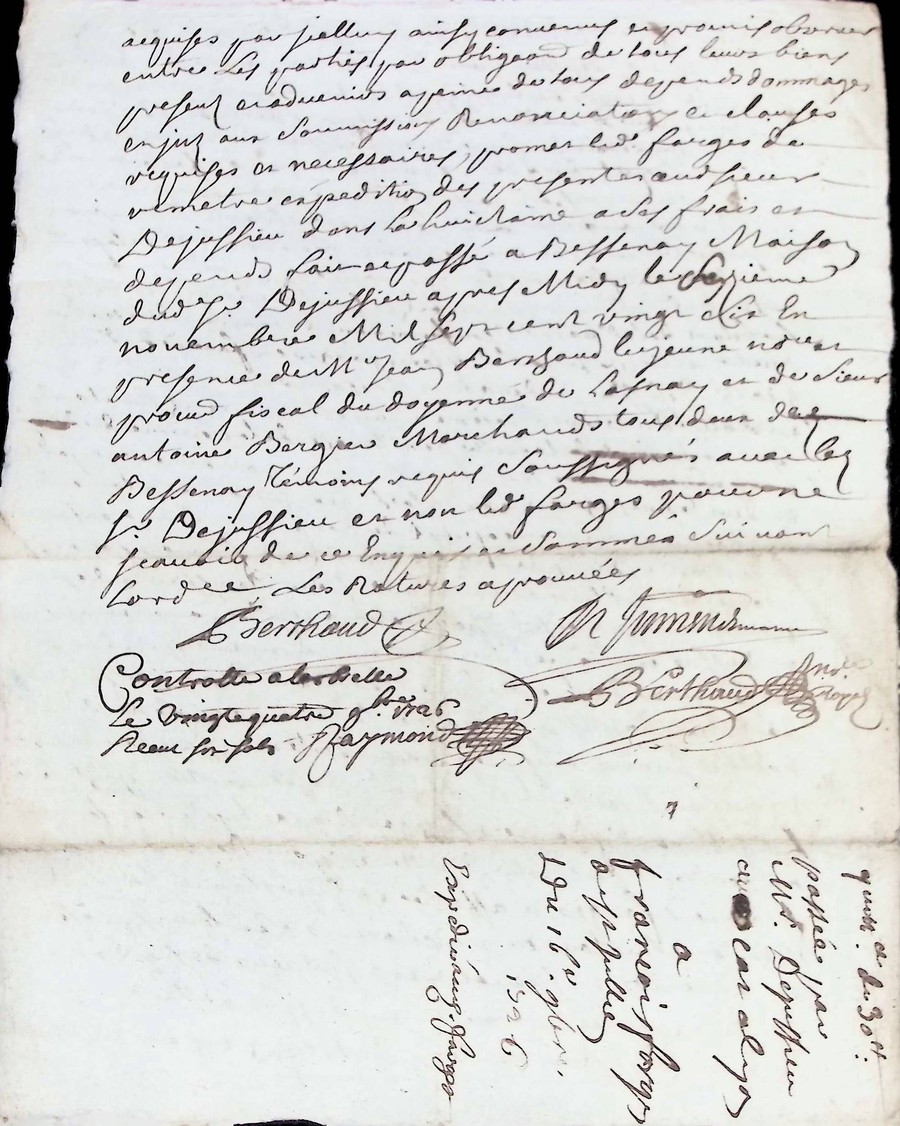 acquises par icelluy ainsy convenus et promis observer
entre Les parties par obligaon de tous leurs biens
presents et advenirs a peine de tous depends dommages
et aux Soumissions Renonciations et clauses
requises et necessaires, promet led. farges de
remetre expedition des presentes aud sieur
Dejussieu dans la huictaine a ses frais et
depends fait et passé a Bessenay Maison
dud Sr. Dejussieu apres Midy le Sezieme
novembre Mil sept cent vingt six En
presence de Mre Jean Berthaud le jeune
procur fiscal du doyenné de et de Sieur
antoine Bergier Marchands tous deux de
Bessenay Témoins requis Soussignés avec led
Sr. Dejussieu et non led. farges pour ne
scavoir de ce Enquis et Sommés Suivant
Lord Les Ratures aprouvées
Berthaud
Berthaud
Controllé a larbrelle
Le vingtquatre 9bre 1726
Receu six sols Raymond
quitt. ce de 30tt.
passée par
Mr. Dejussieu
a
francois farges
Du 16e. 9bre.
1726
farges